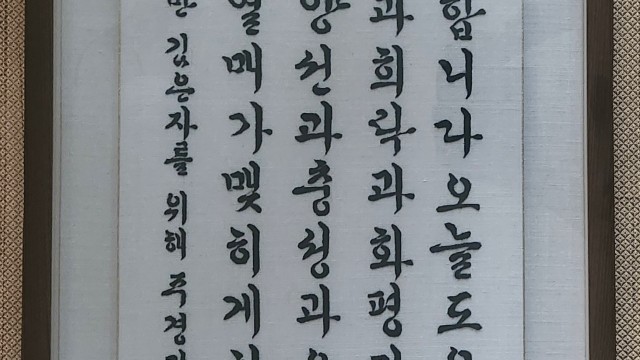 합니다오늘도
과희락과화평
양선과충성과
열매가맺히게
깊은자들 위해 주경